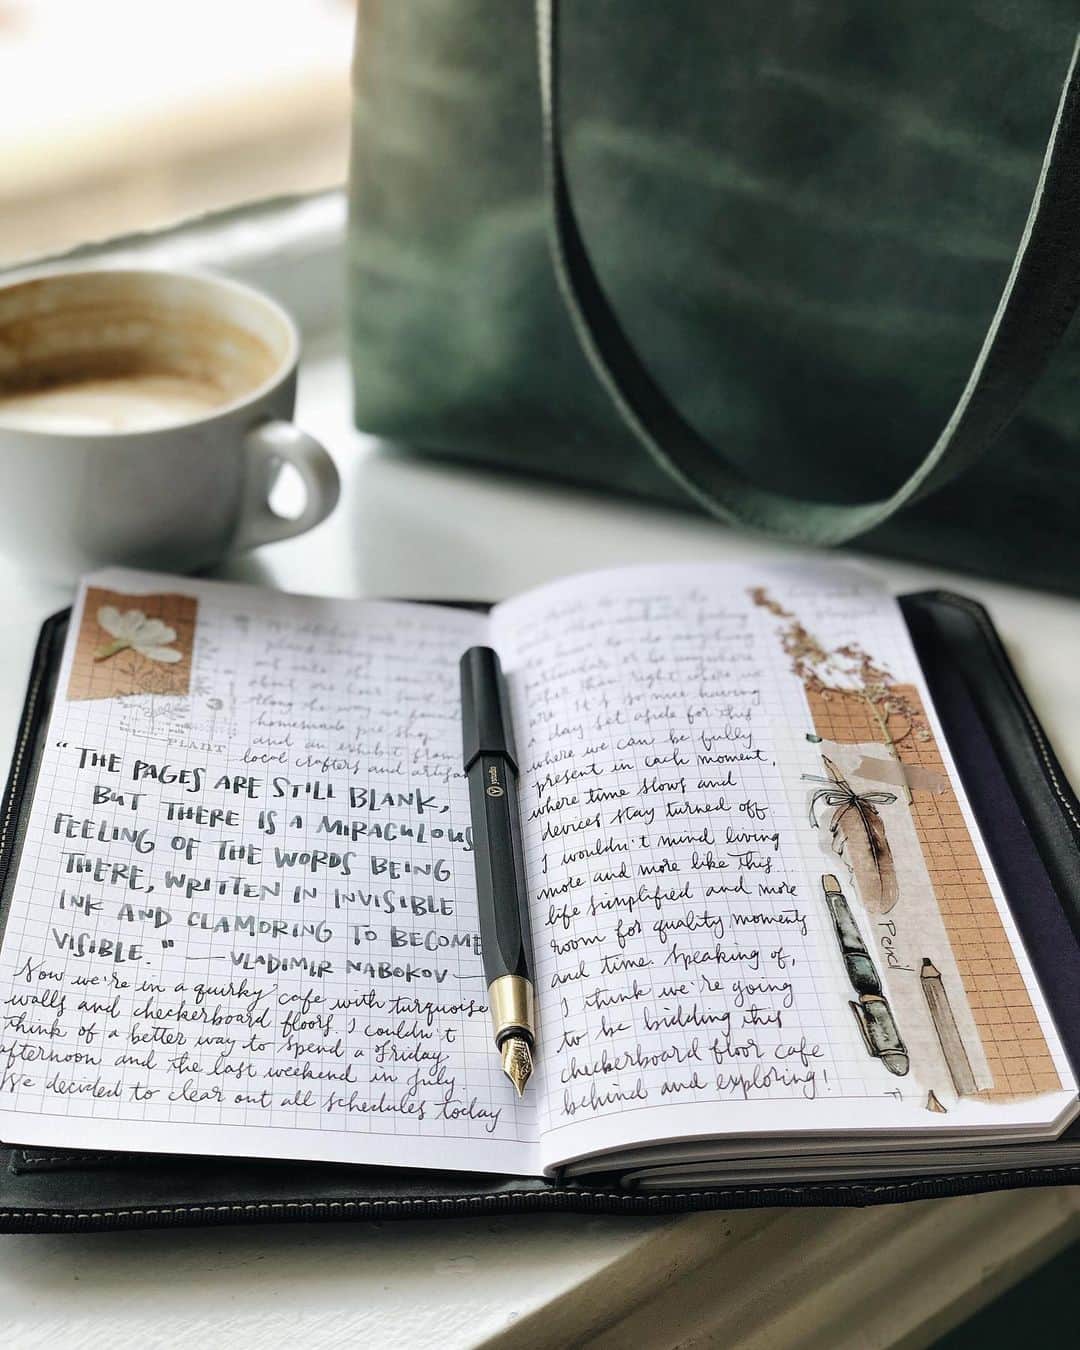 out into the country
about one hour
along the way we found
homemade pie shop
and an exhibit from
local crafters and artisans
PLANT
"THE PAGES ARE STILL BLANK,
BUT THERE IS A MIRACULOUS
FEELING OF THE WORDS BEING
THERE, WRITTEN IN INVISIBLE
INK AND CLAMORING TO BECOME
VISIBLE." — VLADIMIR NABOKOV —
Now we're in a quirky cafe with turquoise
walls and checkerboard floors. I couldn't
think of a better way to spend a Friday
afternoon and the last weekend in July.
We decided to clear out all schedules today
ystudio
to do anything
particular or be anywhere
other than right where we
are. It's so nice having
a day set aside for this
where we can be fully
present in each moment,
where time slows and
devices stay turned off.
I wouldn't mind living
more and more like this.
life simplified and more
room for quality moments
and time. Speaking of,
I think we're going
to be bidding this
checkerboard floor cafe
behind and exploring!
Pencil
F